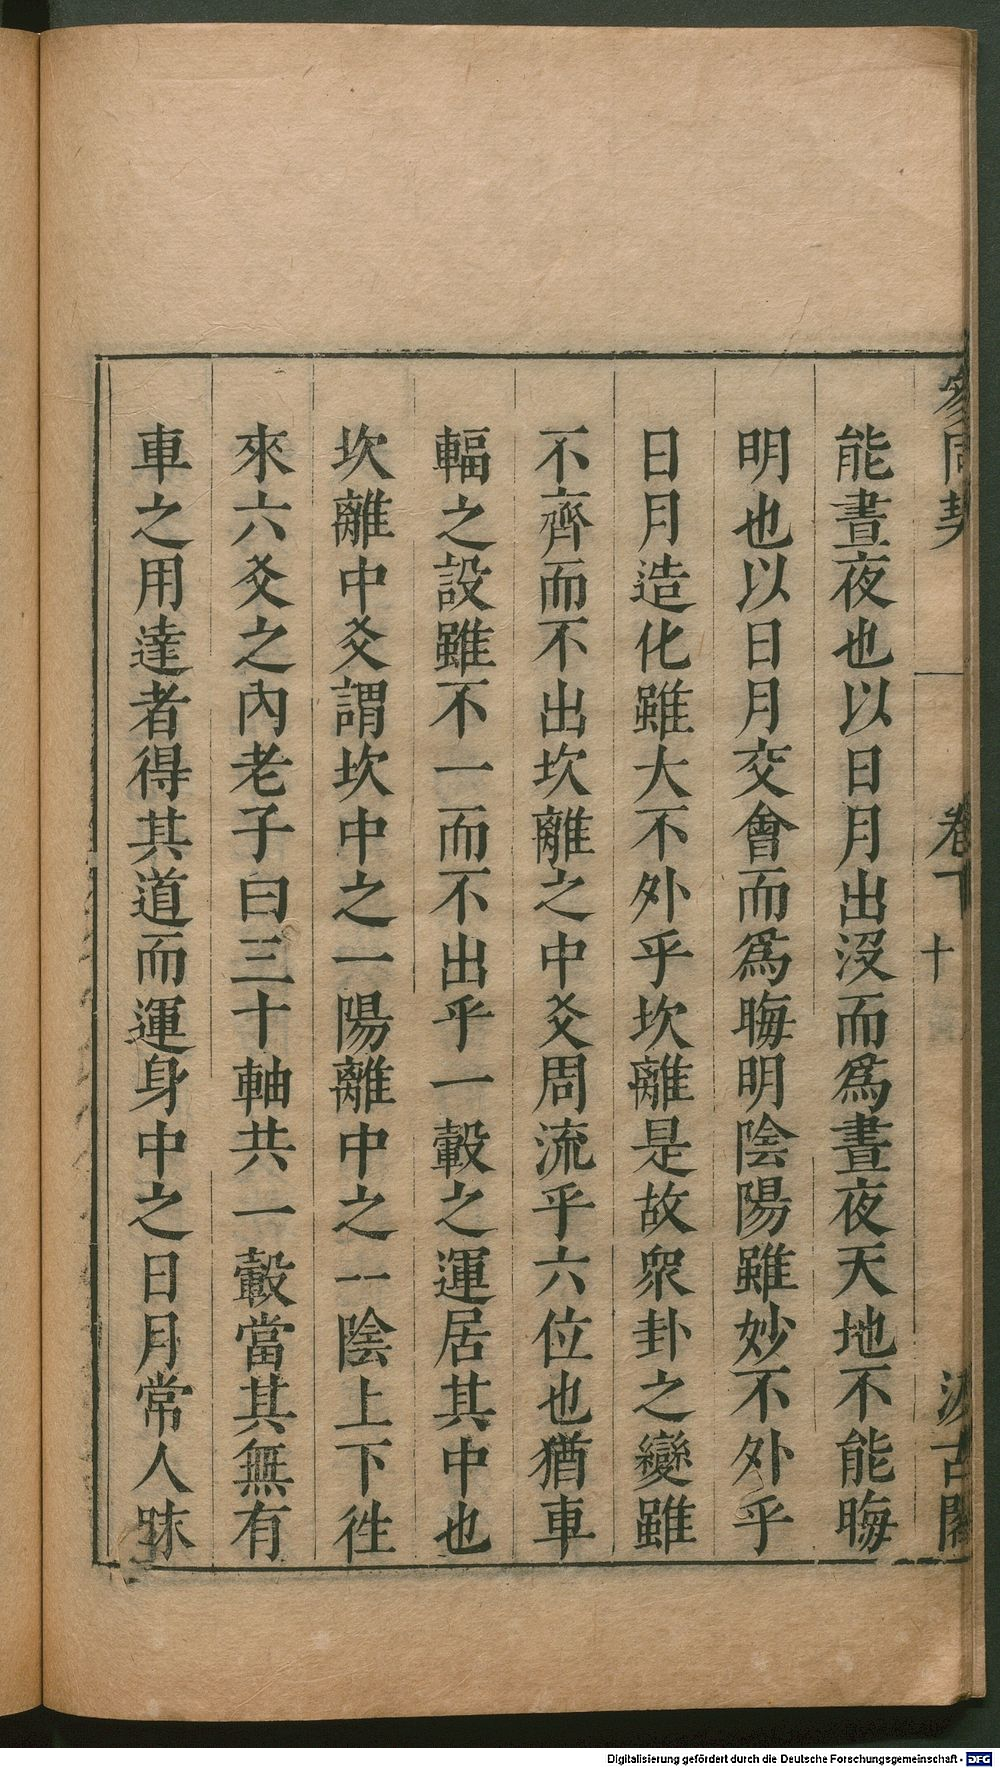 參同契 卷下 十 汲古閣
能晝夜也以日月出沒而爲晝夜天地不能晦
明也以日月交會而爲晦明陰陽雖妙不外乎
日月造化雖大不外乎坎離是故衆卦之變雖
不齊而不出坎離之中爻周流乎六位也猶車
輻之設雖不一而不出乎一轂之運居其中也
坎離中爻謂坎中之一陽離中之一陰上下徃
來六爻之內老子曰三十軸共一轂當其無有
車之用達者得其道而運身中之日月常人昧
Digitalisierung gefördert durch die Deutsche Forschungsgemeinschaft - DFG